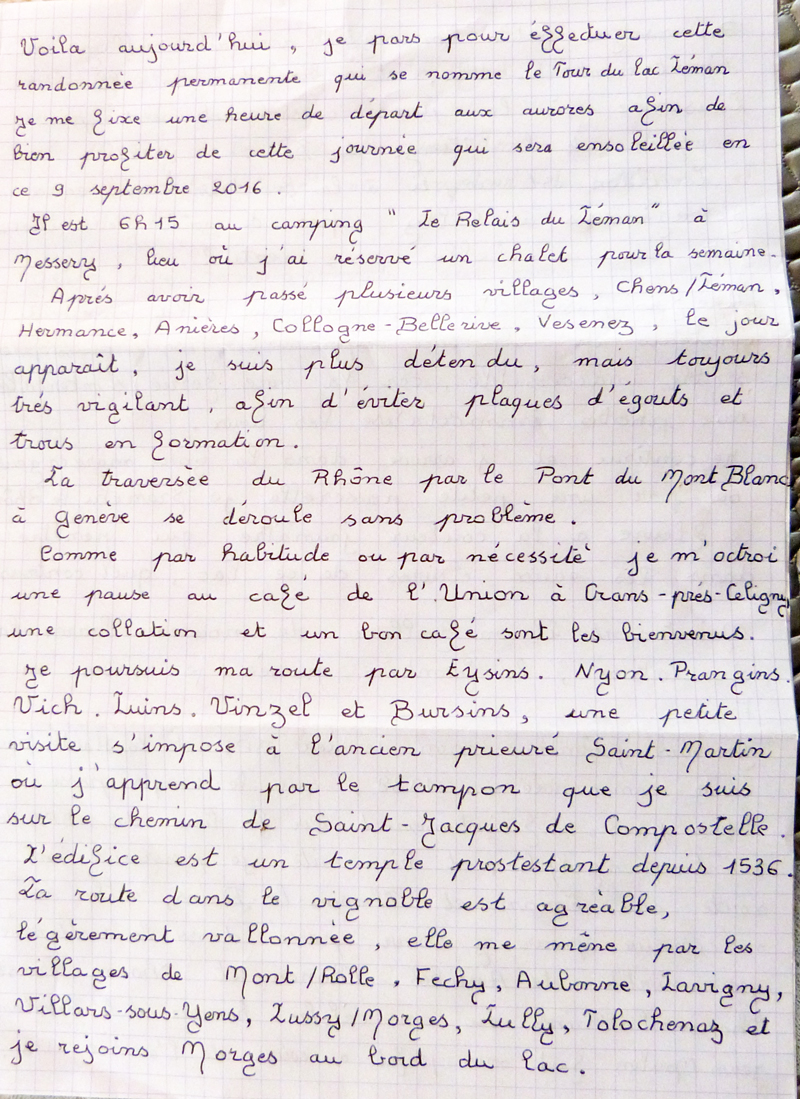 Voila aujourd'hui, je pars pour éffectuer cette
randonnée permanente qui se nomme le Tour du lac Léman
Je me fixe une heure de départ aux aurores afin de
bien profiter de cette journée qui sera ensoleillée en
ce 9 septembre 2016.
Il est 6h15 au camping "Le Relais du Léman" à
Messery, lieu où j'ai réservé un chalet pour la semaine.
Aprés avoir passé plusieurs villages, Chens/Léman,
Hermance, Anières, Collogne-Bellerive, Vesenez, le jour
apparaît, je suis plus détendu, mais toujours
trés vigilant, afin d'éviter plaques d'égouts et
trous en formation.
La traversée du Rhône par le Pont du Mont Blanc
à genève se déroule sans problème.
Comme par habitude ou par nécessité je m'octroi
une pause au café de l'Union à Crans-prés-Celigny,
une collation et un bon café sont les bienvenus.
Je poursuis ma route par Eysins. Nyon. Prangins.
Vich. Luins. Vinzel et Bursins, une petite
visite s'impose à l'ancien prieuré Saint-Martin
où j'apprend par le tampon que je suis
sur le chemin de Saint-Jacques de Compostelle.
L'édifice est un temple prostestant depuis 1536.
La route dans le vignoble est agréable,
légèrement vallonnée, elle me mène par les
villages de Mont/Rolle, Fechy, Aubonne, Lavigny,
Villars-sous-Yens, Lussy/Morges, Lully, Tolochenaz et
je rejoins Morges au bord du lac.